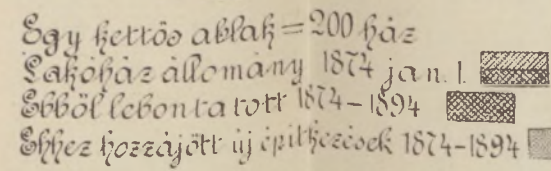 Egy kettős ablak = 200 ház
Lakóház állomány 1874 jan. 1.
Ebből lebontatott 1874–1894
Ehhez hozzájött új építkezések 1874–1894